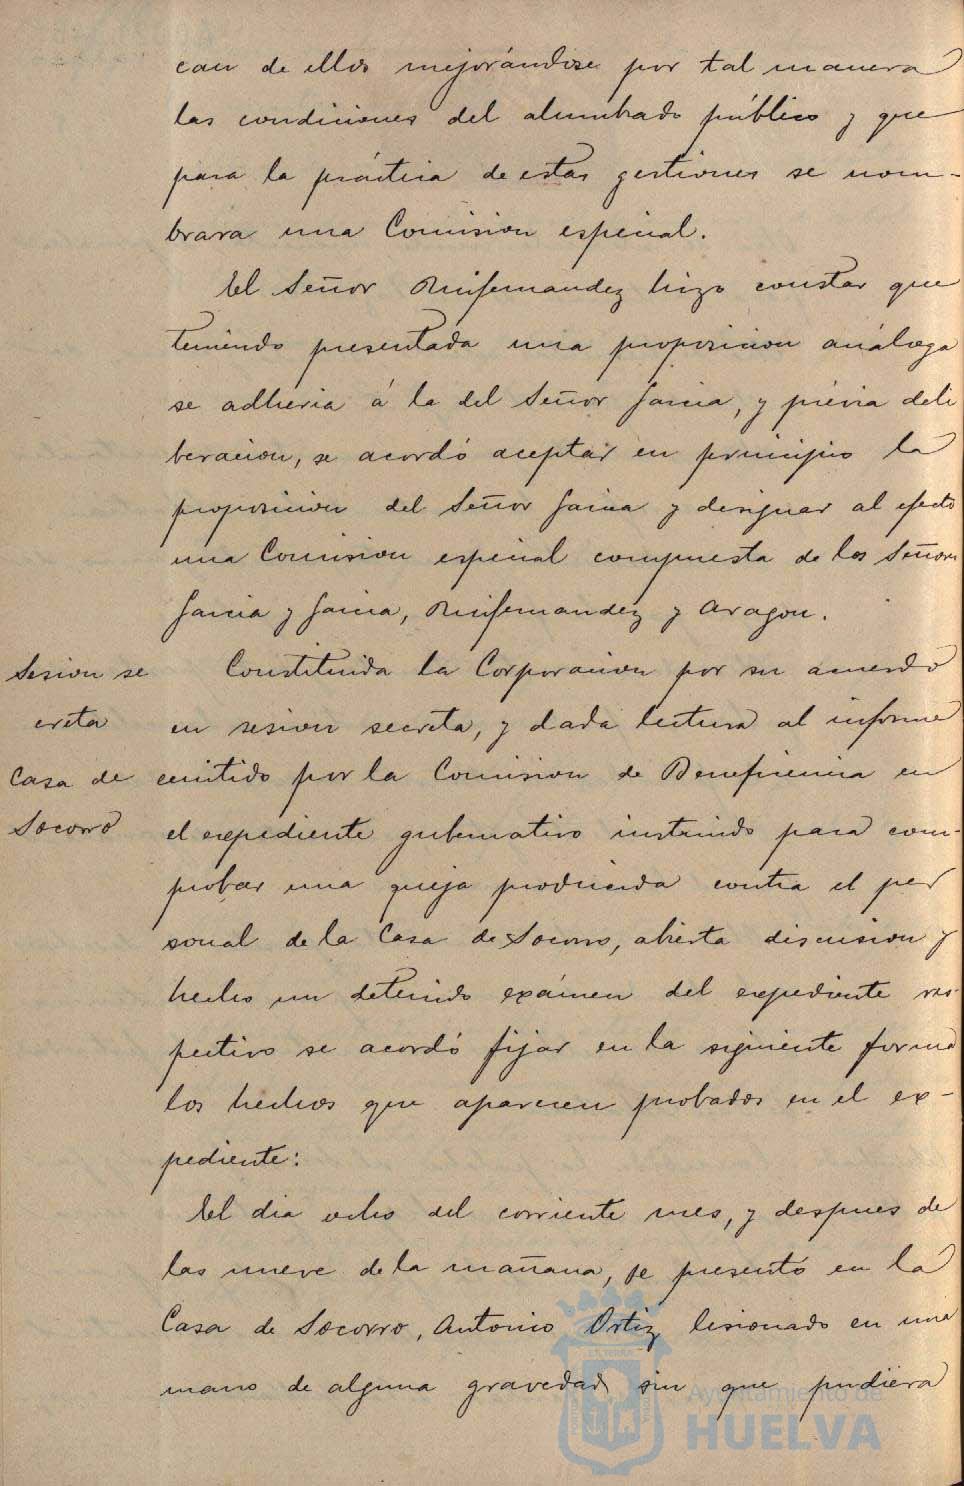 can de ellos mejorándose por tal manera
las condiciones del alumbrado público y que
para la práctica de estas gestiones se nom-
brara una Comision especial.
El Señor Ruifernandez hizo constar que
teniendo presentada una proposicion análoga
se adheria á la del Señor Garcia, y prévia deli
beracion, se acordó aceptar en principio la
proposicion del Señor Garcia y designar al efecto
una Comision especial compuesta de los Señores
Garcia y Garcia, Ruifernandez y Aragon.
Sesion se
creta
Casa de
Socorro
Constituida la Corporacion por su acuerdo
en sesion secreta, y dada lectura al informe
emitido por la Comision de Beneficencia en
el expediente gubernativo instruido para com-
probar una queja producida contra el per
sonal de la Casa de Socorro, abierta discusion y
hecho un detenido exámen del expediente res-
pectivo se acordó fijar en la siguiente forma
los hechos que aparecen probados en el ex-
pediente:
El dia ocho del corriente mes, y despues de
las nueve de la mañana, se presentó en la
Casa de Socorro, Antonio Ortiz lesionado en una
mano de alguna gravedad, sin que pudiera
Ayuntamiento de
HUELVA